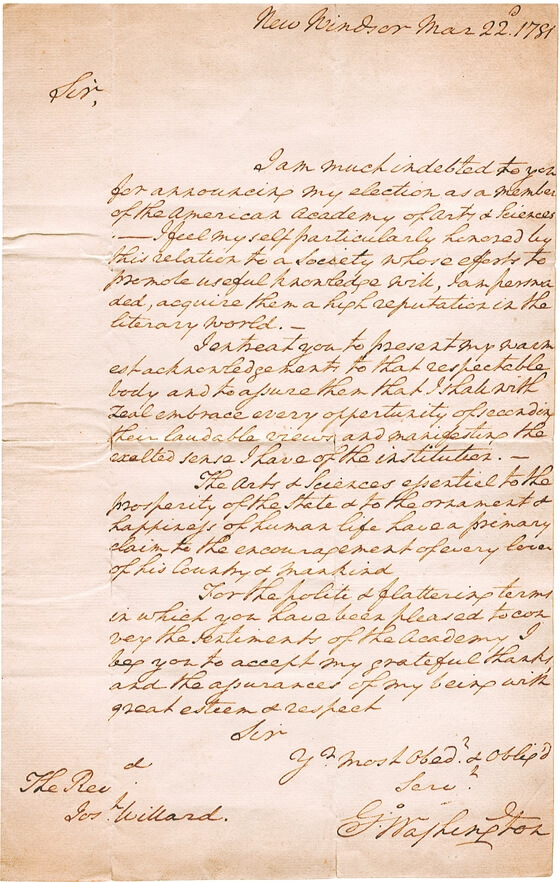 New Windsor Mar 22d. 1781
Sir,
I am much indebted to you
for announcing my election as a member
of the American Academy of Arts & Sciences
. — I feel myself particularly honored by
this relation to a Society whose efforts to
promote useful knowledge will, I am persua
ded, acquire them a high reputation in the
literary world. —
I entreat you to present my warm
est acknowledgements to that respectable
body and to assure them that I shall with
zeal embrace every opportunity of seconding
their laudable views and manifesting the
exalted sense I have of the institution. —
The Arts & Sciences essential to the
prosperity of the State & to the ornament &
happiness of human life have a primary
claim to the encouragement of every lover
of his Country & mankind
For the polite & flattering terms
in which you have been pleased to con
vey the sentiments of the Academy I
beg you to accept my grateful thanks
and the assurances of my being with
great esteem & respect
Sir
Yr. most Obedt. & Oblig'd
Servt.
Go. Washington
The Revd.
Josh. Willard.